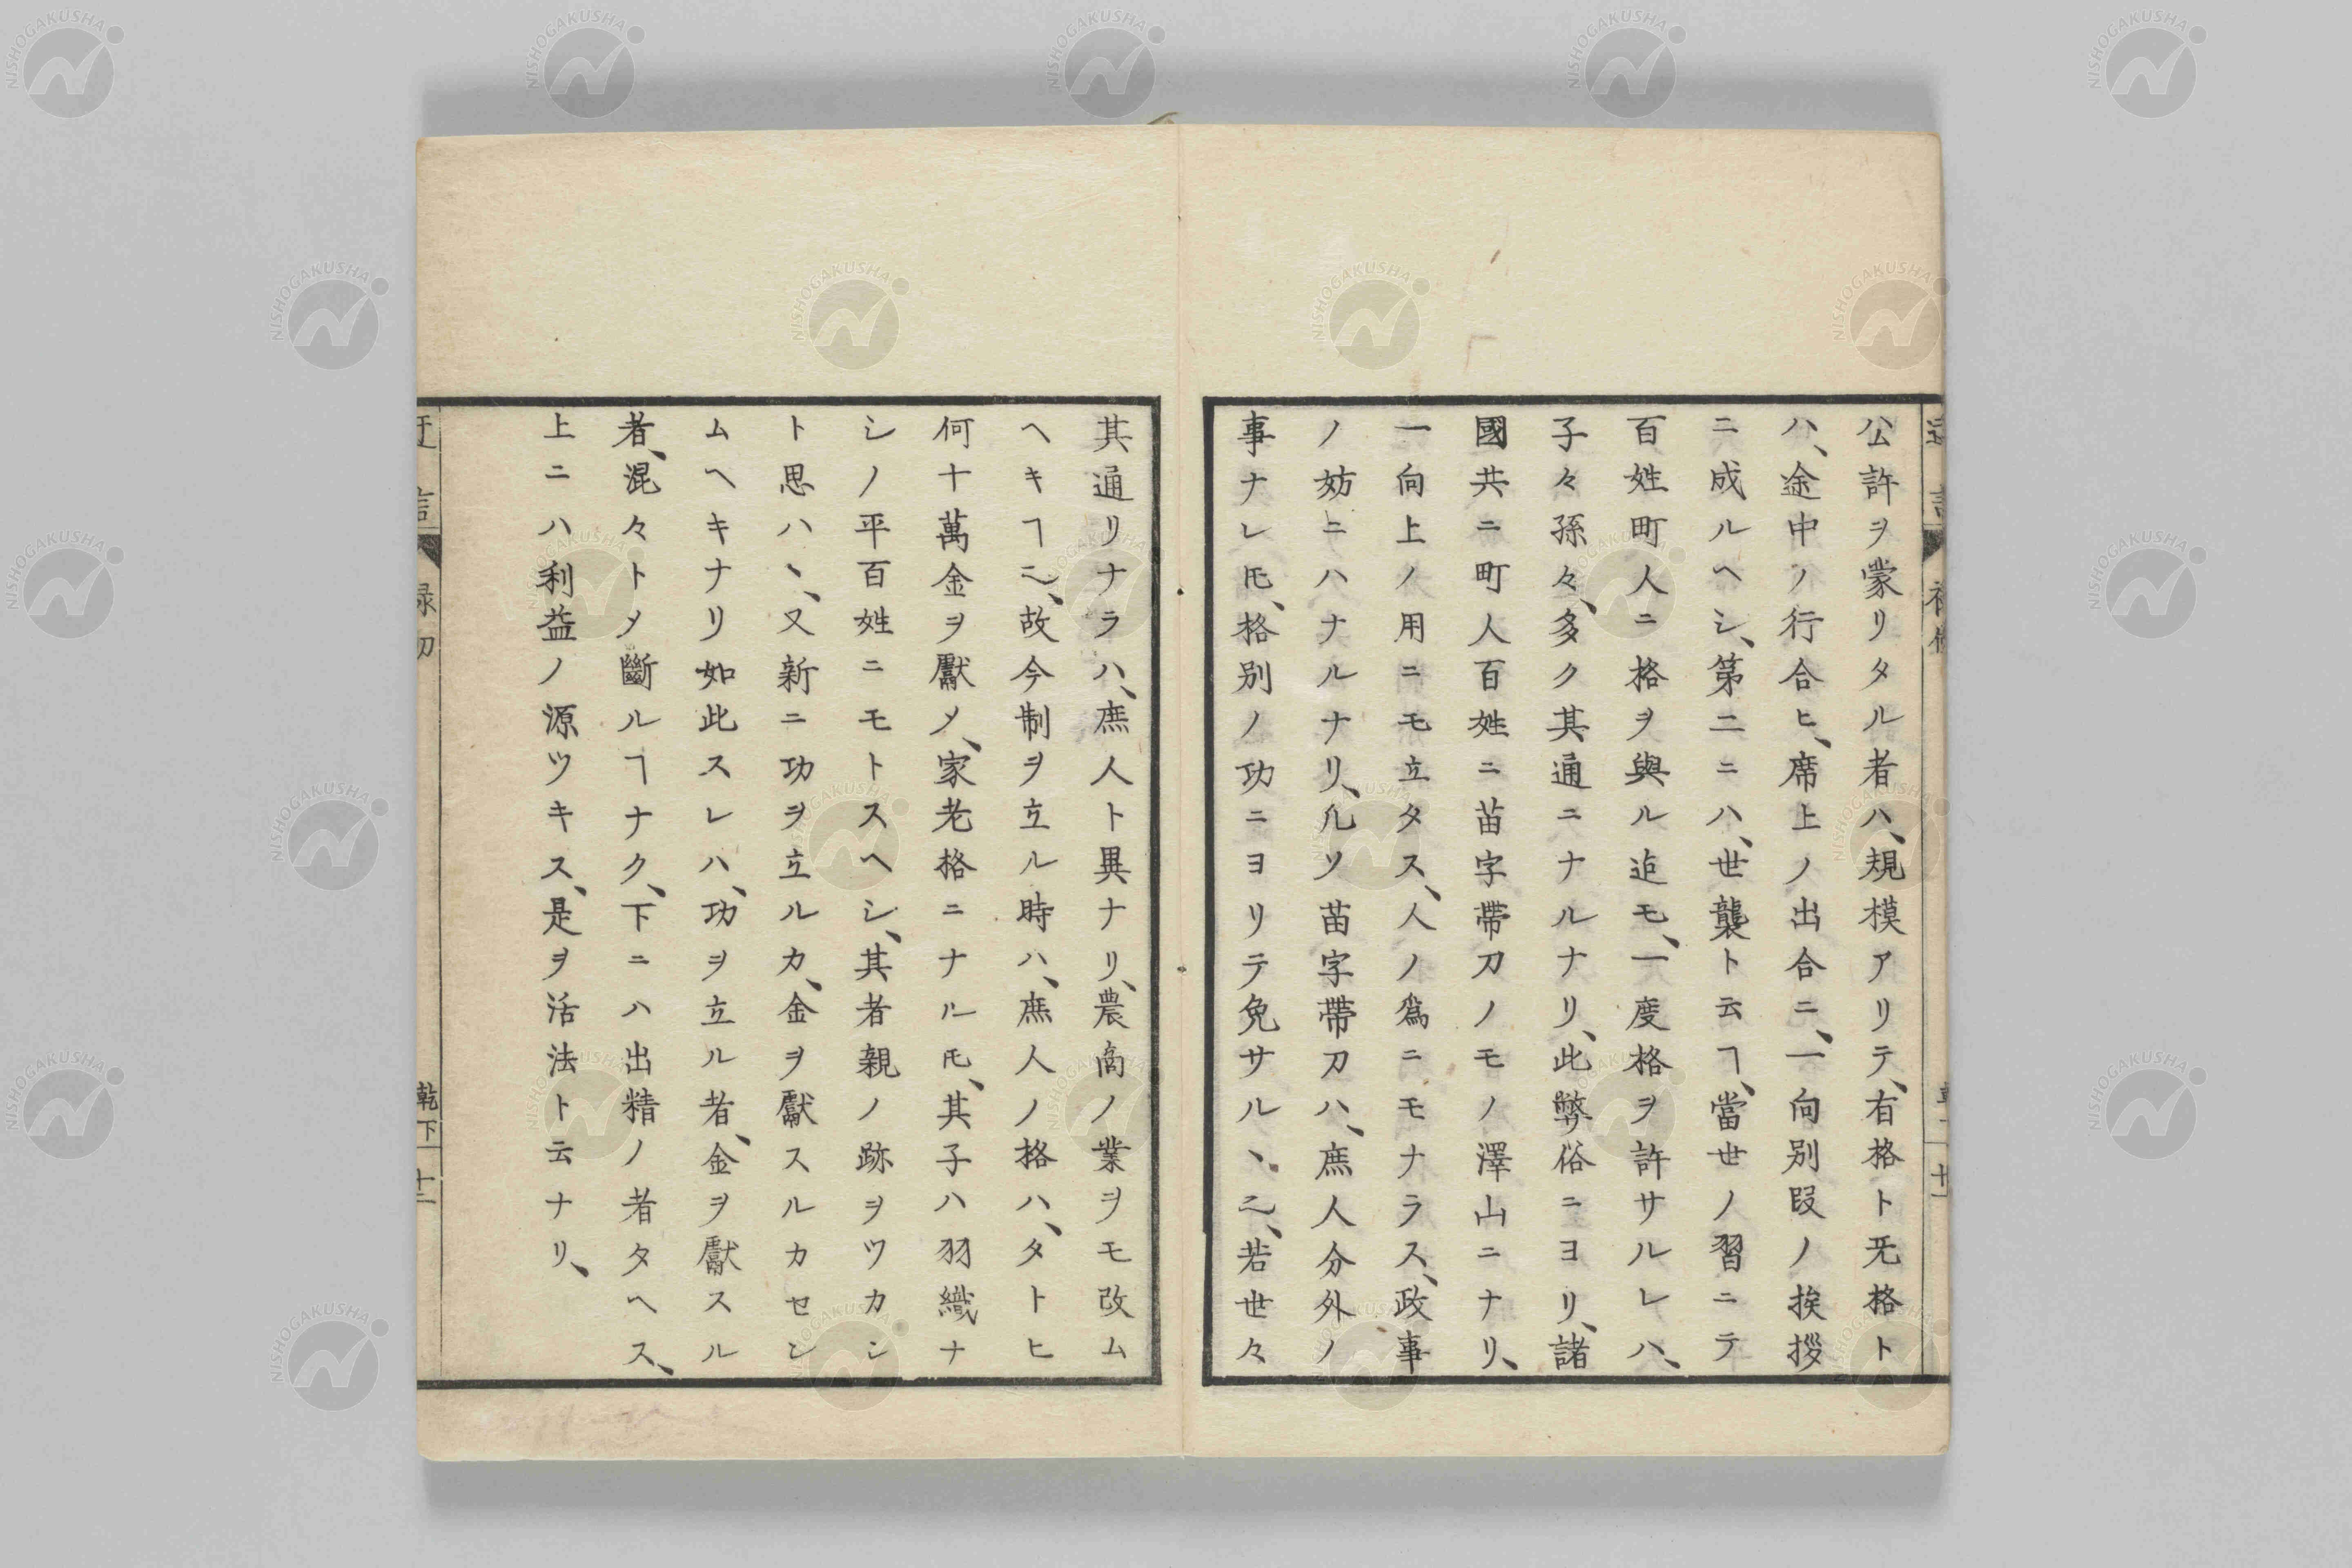 公許ヲ蒙リタル者ハ、規模アリテ、有格ト无格ト
ハ、途中ノ行合ヒ、席上ノ出合ニ、一向別段ノ挨拶
ニ成ルヘシ、第二ニハ、世襲ト云ヿ、當世ノ習ニテ
百姓町人ニ格ヲ與ル迚モ、一度格ヲ許サルレハ、
子々孫々、多ク其通ニナルナリ、此弊俗ニヨリ、諸
國共ニ町人百姓ニ苗字帶刀ノモノ澤山ニナリ、
一向上ノ用ニモ立タス、人ノ爲ニモナラス、政事
ノ妨ニハナルナリ、凡ソ苗字帶刀ハ、庶人分外ノ
事ナレ𪜈、格別ノ功ニヨリテ免サルヽ也、若世々
其通リナラハ、庶人ト異ナリ、農商ノ業ヲモ改ム
ヘキヿ也、故今制ヲ立ル時ハ、庶人ノ格ハ、タトヒ
何十萬金ヲ獻メ、家老格ニナル𪜈、其子ハ羽織ナ
シノ平百姓ニモトスヘシ、其者親ノ跡ヲツカン
ト思ハヽ、又新ニ功ヲ立ルカ、金ヲ獻スルカセシ
ムヘキナリ如此スレハ、功ヲ立ル者、金ヲ獻スル
者、混々トメ斷ルヿナク、下ニハ出精ノ者タヘス、
上ニハ利益ノ源ツキス、是ヲ活法ト云ナリ、
乾下
十二
NISHOGAKUSHA